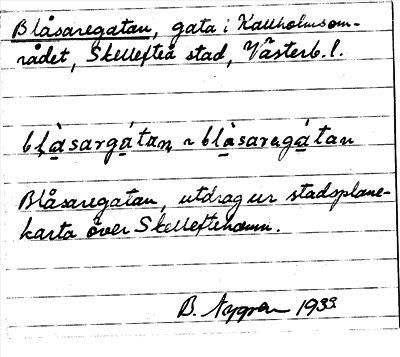 Blåsaregatan, gata i Kallholmsom-
rådet, Skellefteå stad, Västerb. l.
blå̀sargátan, ~ blå̀saregátan
Blåsaregatan, utdrag ur stadsplane-
karta över Skelleftehamn.
B. Nygren 1933